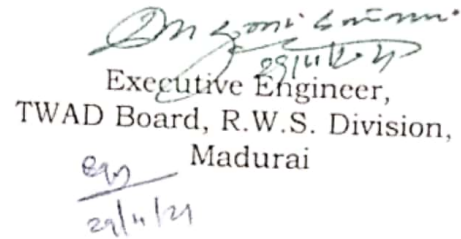 29/11/21
Executive Engineer,
TWAD Board, R.W.S. Division,
Madurai
29/11/21